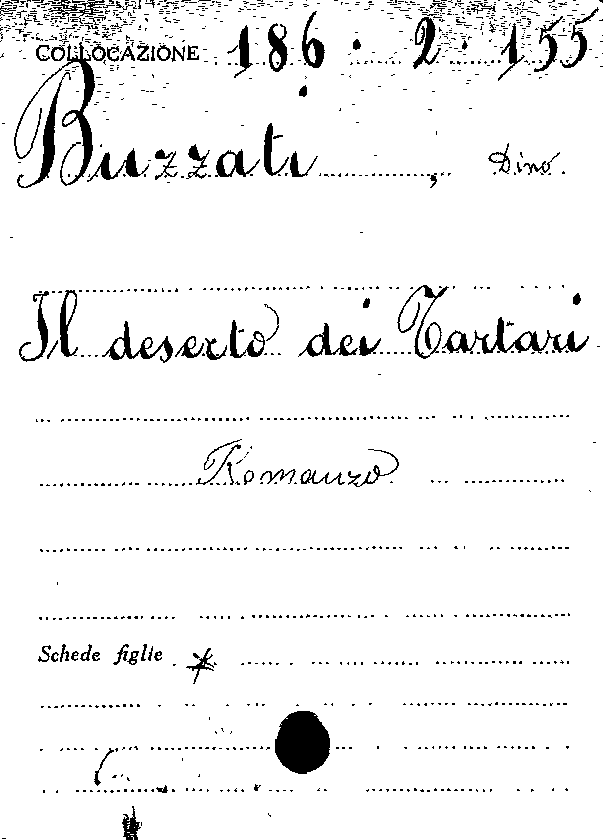 COLLOCAZIONE 186.2.155
Buzzati, Dino.
Il deserto dei Tartari
Romanzo
Schede figlie *